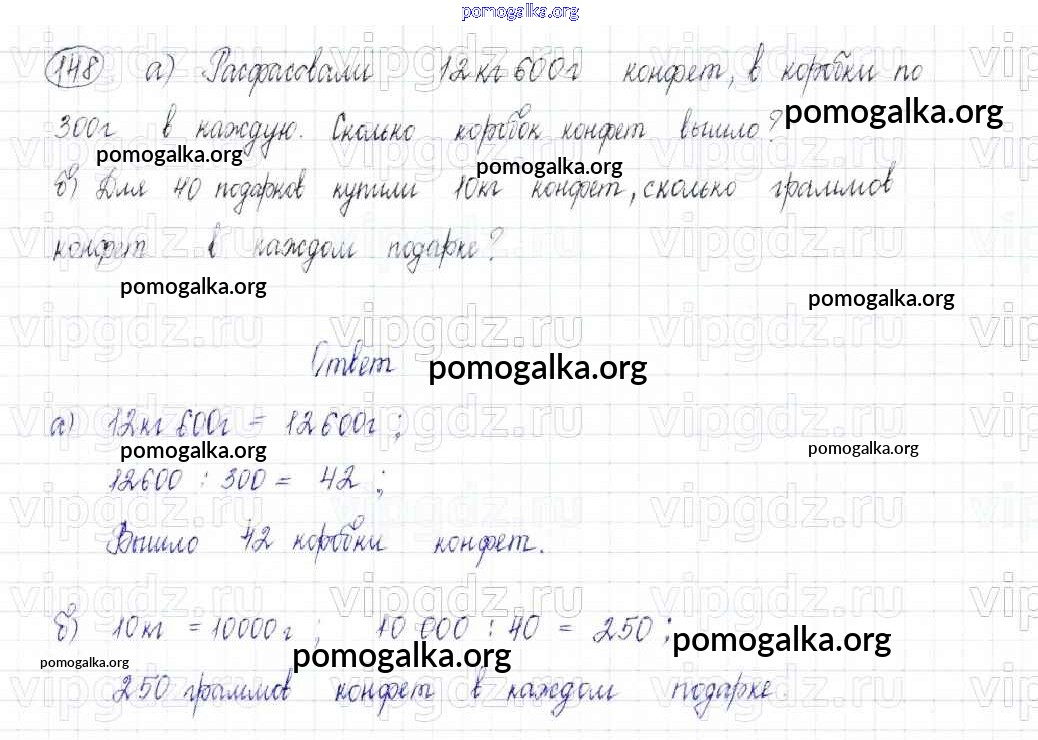 pomogalka.org
148 а) Расфасовали 12 кг 600 г конфет, в коробки по
pomogalka.org
300г в каждую. Сколько коробок конфет вышло?
pomogalka.org pomogalka.org
б) Для 40 подарков купили 10кг конфет, сколько граммов
конфет в каждом подарке?
pomogalka.org pomogalka.org
Ответ pomogalka.org
а) 12кг 600г = 12600г;
pomogalka.org pomogalka.org
12600 : 300 = 42;
Вышло 42 коробки конфет.
vipgdz.ru vipgdz.ru vipgdz.ru
б) 10кг = 10000г; 10 000 : 40 = 250;
pomogalka.org pomogalka.org pomogalka.org
250 граммов конфет в каждом подарке.